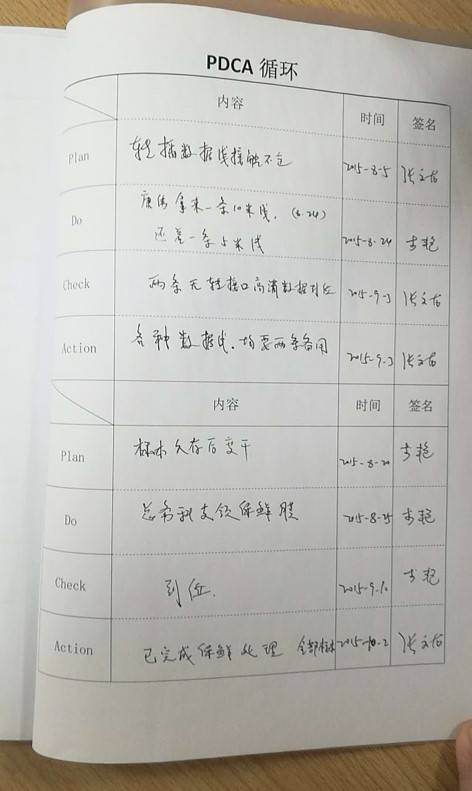 PDCA 循环
内容 时间 签名
Plan 转播数据线接触不好 2015-8-5 张文右
Do 康伟拿来一条10米线. (8.24)
还差一条5米线 2015-8-24 李艳
Check 两条无转接口高清数据到位 2015-9-3 张文右
Action 各种数据线.均要两条备用 2015-9-3 张文右
内容 时间 签名
Plan 标本久存后变干 2015-8-20 李艳
Do 总务科支领保鲜膜 2015-8-25 李艳
Check 到位. 2015-9.10 李艳
Action 已完成保鲜处理 全部标本 2015-10-2 张文右